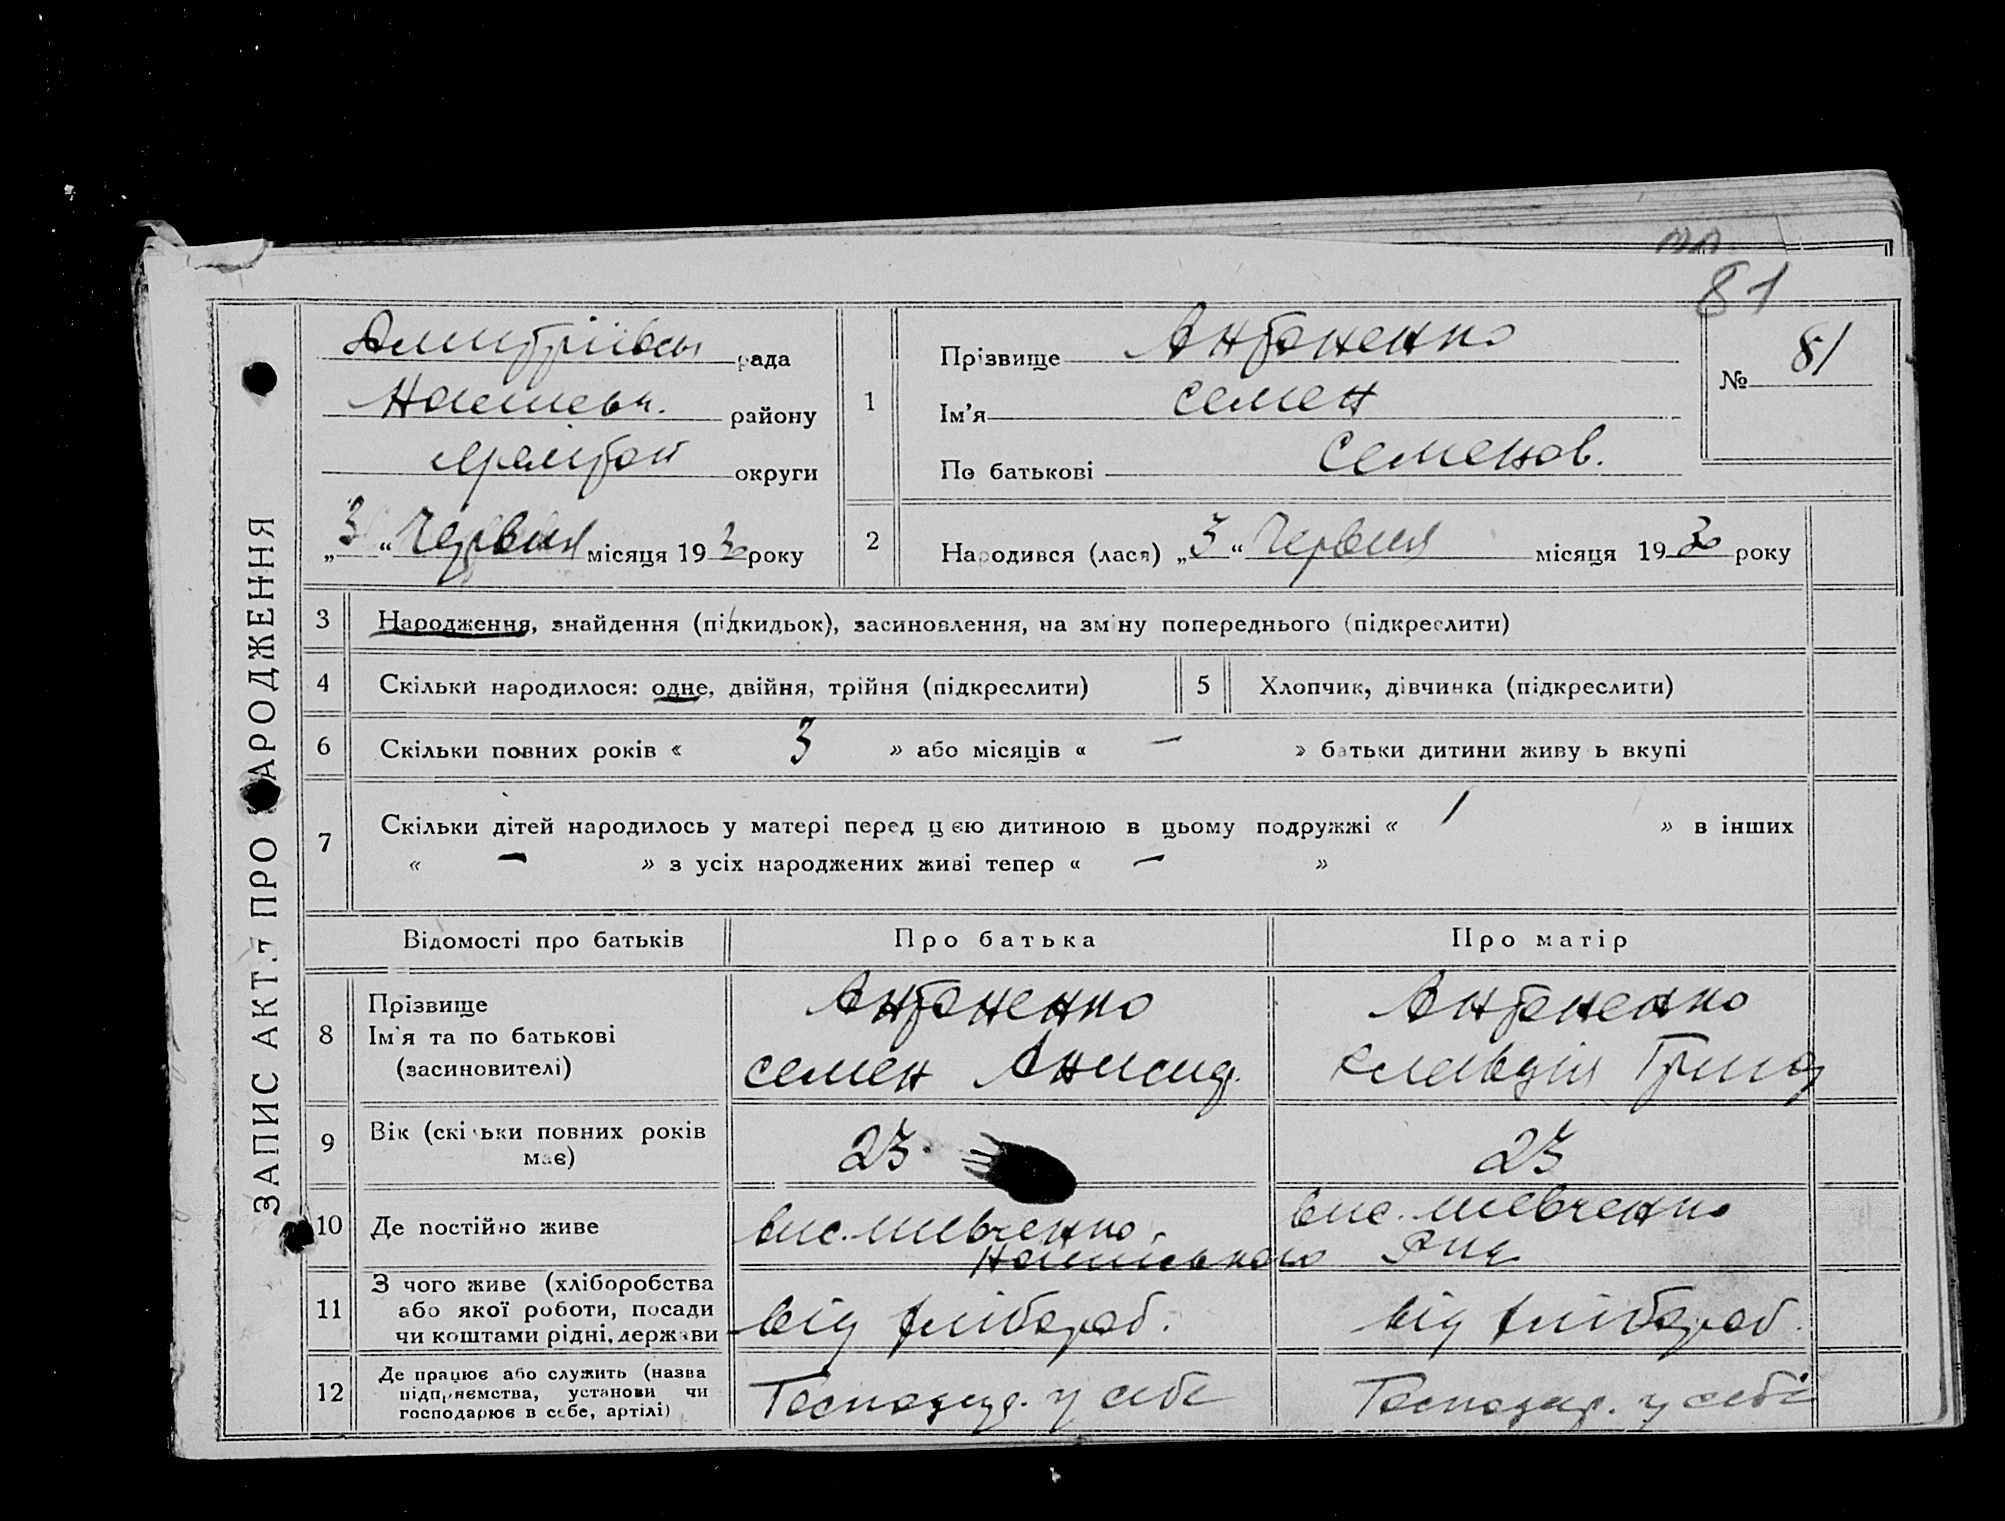 81
ЗАПИС АКТ. ПРО НАРОДЖЕННЯ
Дмитрівськ рада
району
округи
„3“ Червня місяця 1930 року
1
Прізвище Антоненко
Ім'я Семен
По батькові Семенов.
№ 81
2
Народився (лася) „3“ Червня місяця 1930 року
3 Народження, знайдення (підкидьок), засиновлення, на зміну попереднього (підкреслити)
4 Скільки народилося: одне, двійня, трійня (підкреслити)
5 Хлопчик, дівчинка (підкреслити)
6 Скільки повних років « 3 » або місяців « — » батьки дитини живуть вкупі
7 Скільки дітей народилось у матері перед цією дитиною в цьому подружжі « 1 » в інших
« — » з усіх народжених живі тепер « — »
Відомості про батьків Про батька Про матір
8 Прізвище
Ім'я та по батькові
(засиновителі)
Антоненко
Семен
Антоненко
Клавдія Григ
9 Вік (скільки повних років
має)
23
23
10 Де постійно живе
вис. Шевченко
вис. Шевченко
11 З чого живе (хліборобства
або якої роботи, посади
чи коштами рідні, держави
від хлібороб.
від хлібороб.
12 Де працює або служить (назва
підприємства, установи чи
господарює в себе, артілі)
Господар. у себе
Господар. у себе